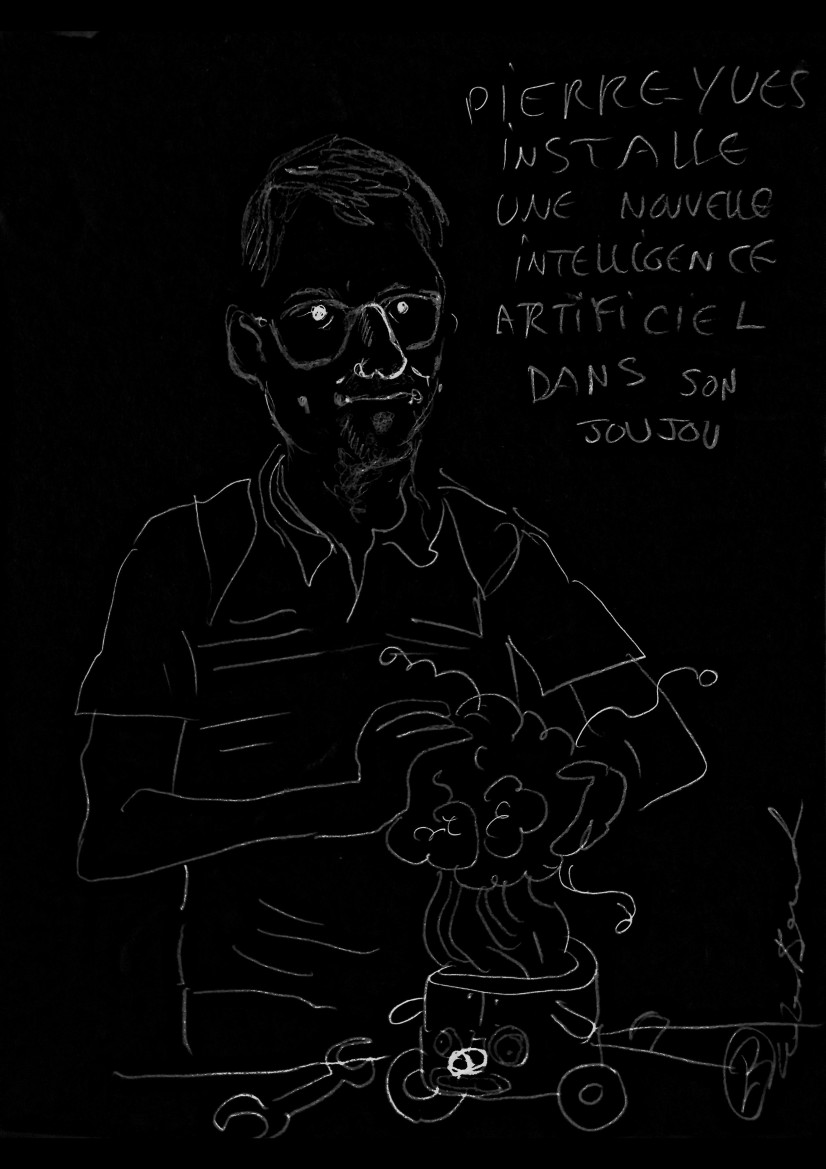 PIERRE-YVES
INSTALLE
UNE NOUVELLE
INTELLIGENCE
ARTIFICIEL
DANS SON
JOUJOU